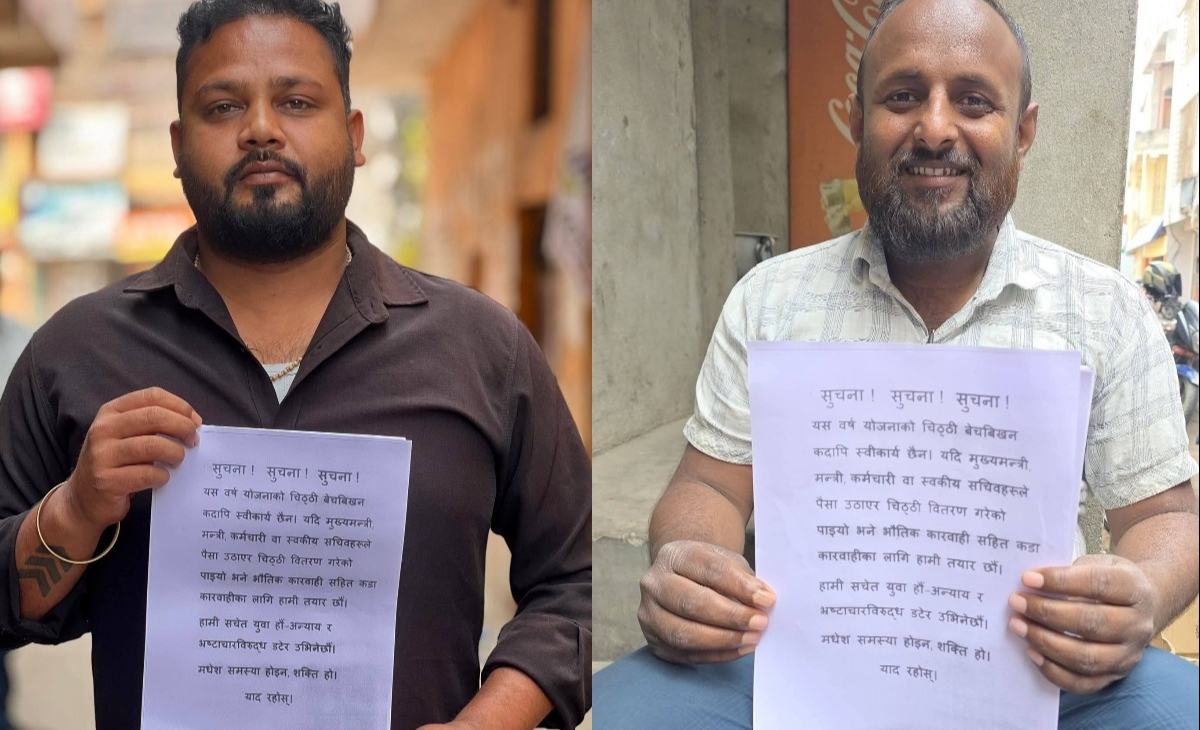 सुचना ! सुचना ! सुचना !
यस वर्ष योजनाको चिठ्ठी बेचबिखन
कदापि स्वीकार्य छैन। यदि मुख्यमन्त्री,
मन्त्री, कर्मचारी वा स्वकीय सचिवहरूले
पैसा उठाएर चिठ्ठी वितरण गरेको
पाइयो भने भौतिक कारवाही सहित कडा
कारवाहीका लागि हामी तयार छौं।
हामी सचेत युवा हौं-अन्याय र
भ्रष्टाचारविरुद्ध डटेर उभिनेछौं।
मधेश समस्या होइन, शक्ति हो।
याद रहोस्।
Coca-Co
सुचना ! सुचना ! सुचना !
यस वर्ष योजनाको चिठ्ठी बेचबिखन
कदापि स्वीकार्य छैन। यदि मुख्यमन्त्री,
मन्त्री, कर्मचारी वा स्वकीय सचिवहरूले
पैसा उठाएर चिठ्ठी वितरण गरेको
पाइयो भने भौतिक कारवाही सहित कडा
कारवाहीका लागि हामी तयार छौं।
हामी सचेत युवा हौं-अन्याय र
भ्रष्टाचारविरुद्ध डटेर उभिनेछौं।
मधेश समस्या होइन, शक्ति हो।
याद रहोस्।